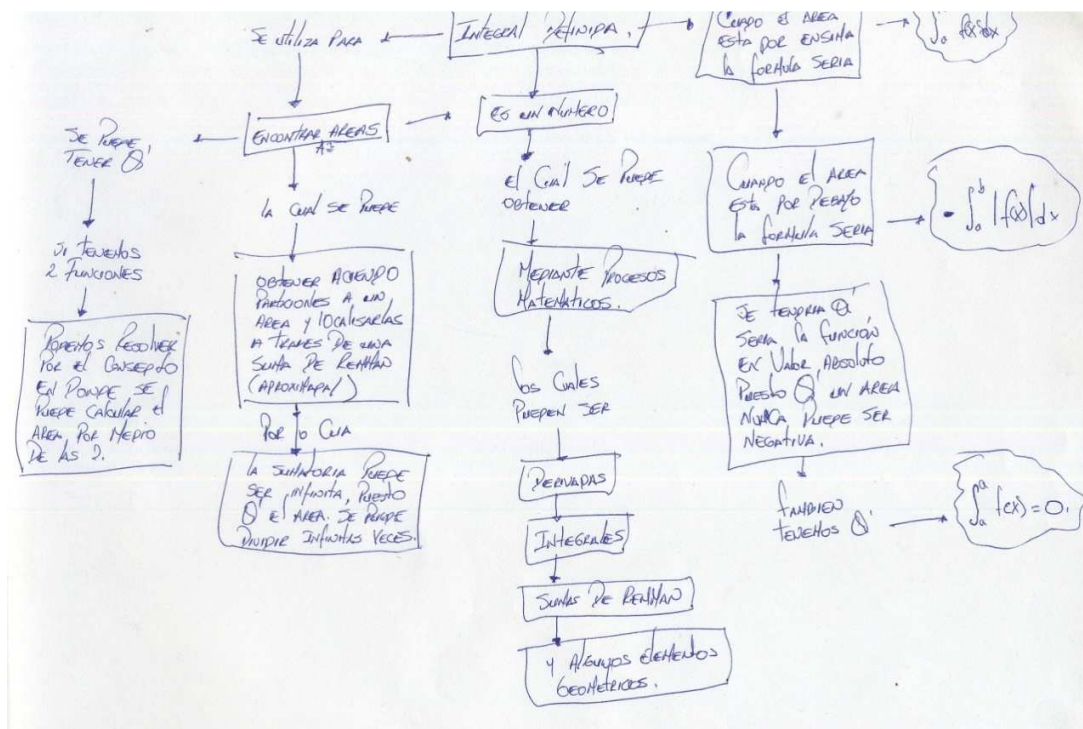 SE UTILIZA PARA
INTEGRAL DEFINIDA.
CUANDO EL AREA
ESTA POR ENSIMA
LA FORMULA SERIA
∫ₐ f(x)dx
ENCONTRAR AREAS
ES UN NUMERO
SE PUEDE
TENER Q'
SI TENEMOS
2 FUNCIONES
PODEMOS RESOLVER
POR EL CONSEPTO
EN DONDE SE
PUEDE CALCULAR EL
AREA POR MEDIO
DE LAS 2.
LA CUAL SE PUEDE
OBTENER ACIENDO
PARTICIONES A UN
AREA Y LOCALISARLAS
A TRAVES DE UNA
SUMA DE REHMAN
(APROXIMADA)
POR LO CUA
LA SUMATORIA PUEDE
SER INFINITA, PUESTO
Q' EL AREA. SE PUEDE
DIVIDIR INFINITAS VECES.
EL CUAL SE PUEDE
OBTENER
MEDIANTE PROCESOS
MATEMATICOS.
LOS CUALES
PUEDEN SER
DERIVADAS
INTEGRALES
SUMAS DE REHMAN
Y ALGUNOS ELEMENTOS
GEOMETRICOS.
CUANDO EL AREA
ESTA POR DEBAJO
LA FORMULA SERIA
- ∫ₐᵇ |f(x)| dx
SE TENDRIA Q'
SERIA LA FUNCIÓN
EN VALOR ABSOLUTO
PUESTO Q' UN AREA
NUNCA PUEDE SER
NEGATIVA.
TAMBIEN
TENEMOS Q'
∫ₐᵃ f(x) = 0.